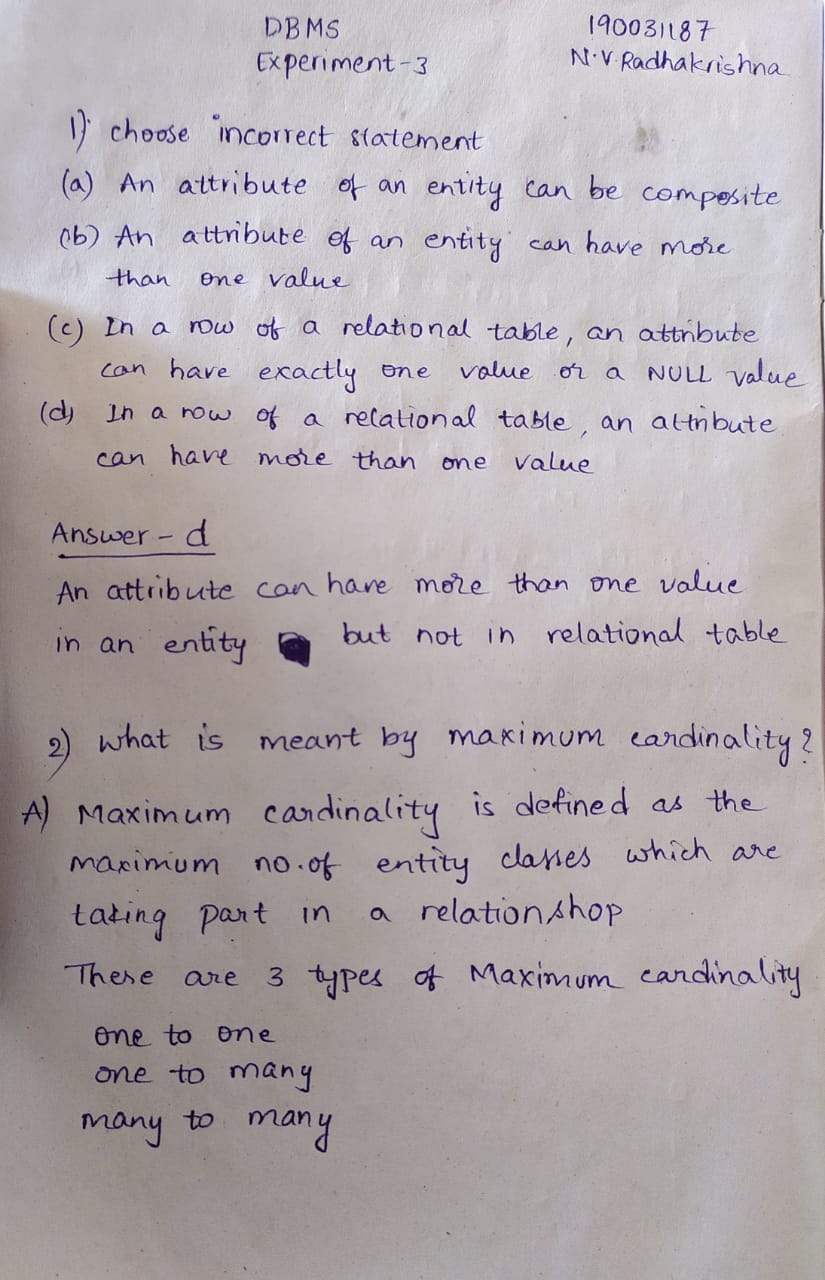 DBMS
190031187
Experiment-3
N.V.Radhakrishna
1) choose incorrect statement
(a) An attribute of an entity can be composite
(b) An attribute of an entity can have more
than one value
(c) In a row of a relational table, an attribute
can have exactly one value or a NULL value
(d) In a row of a relational table, an attribute
can have more than one value
Answer - d
An attribute can have more than one value
in an entity but not in relational table
2) what is meant by maximum cardinality?
A) Maximum cardinality is defined as the
maximum no.of entity classes which are
taking part in a relationshop
There are 3 types of Maximum cardinality
one to one
one to many
many to many